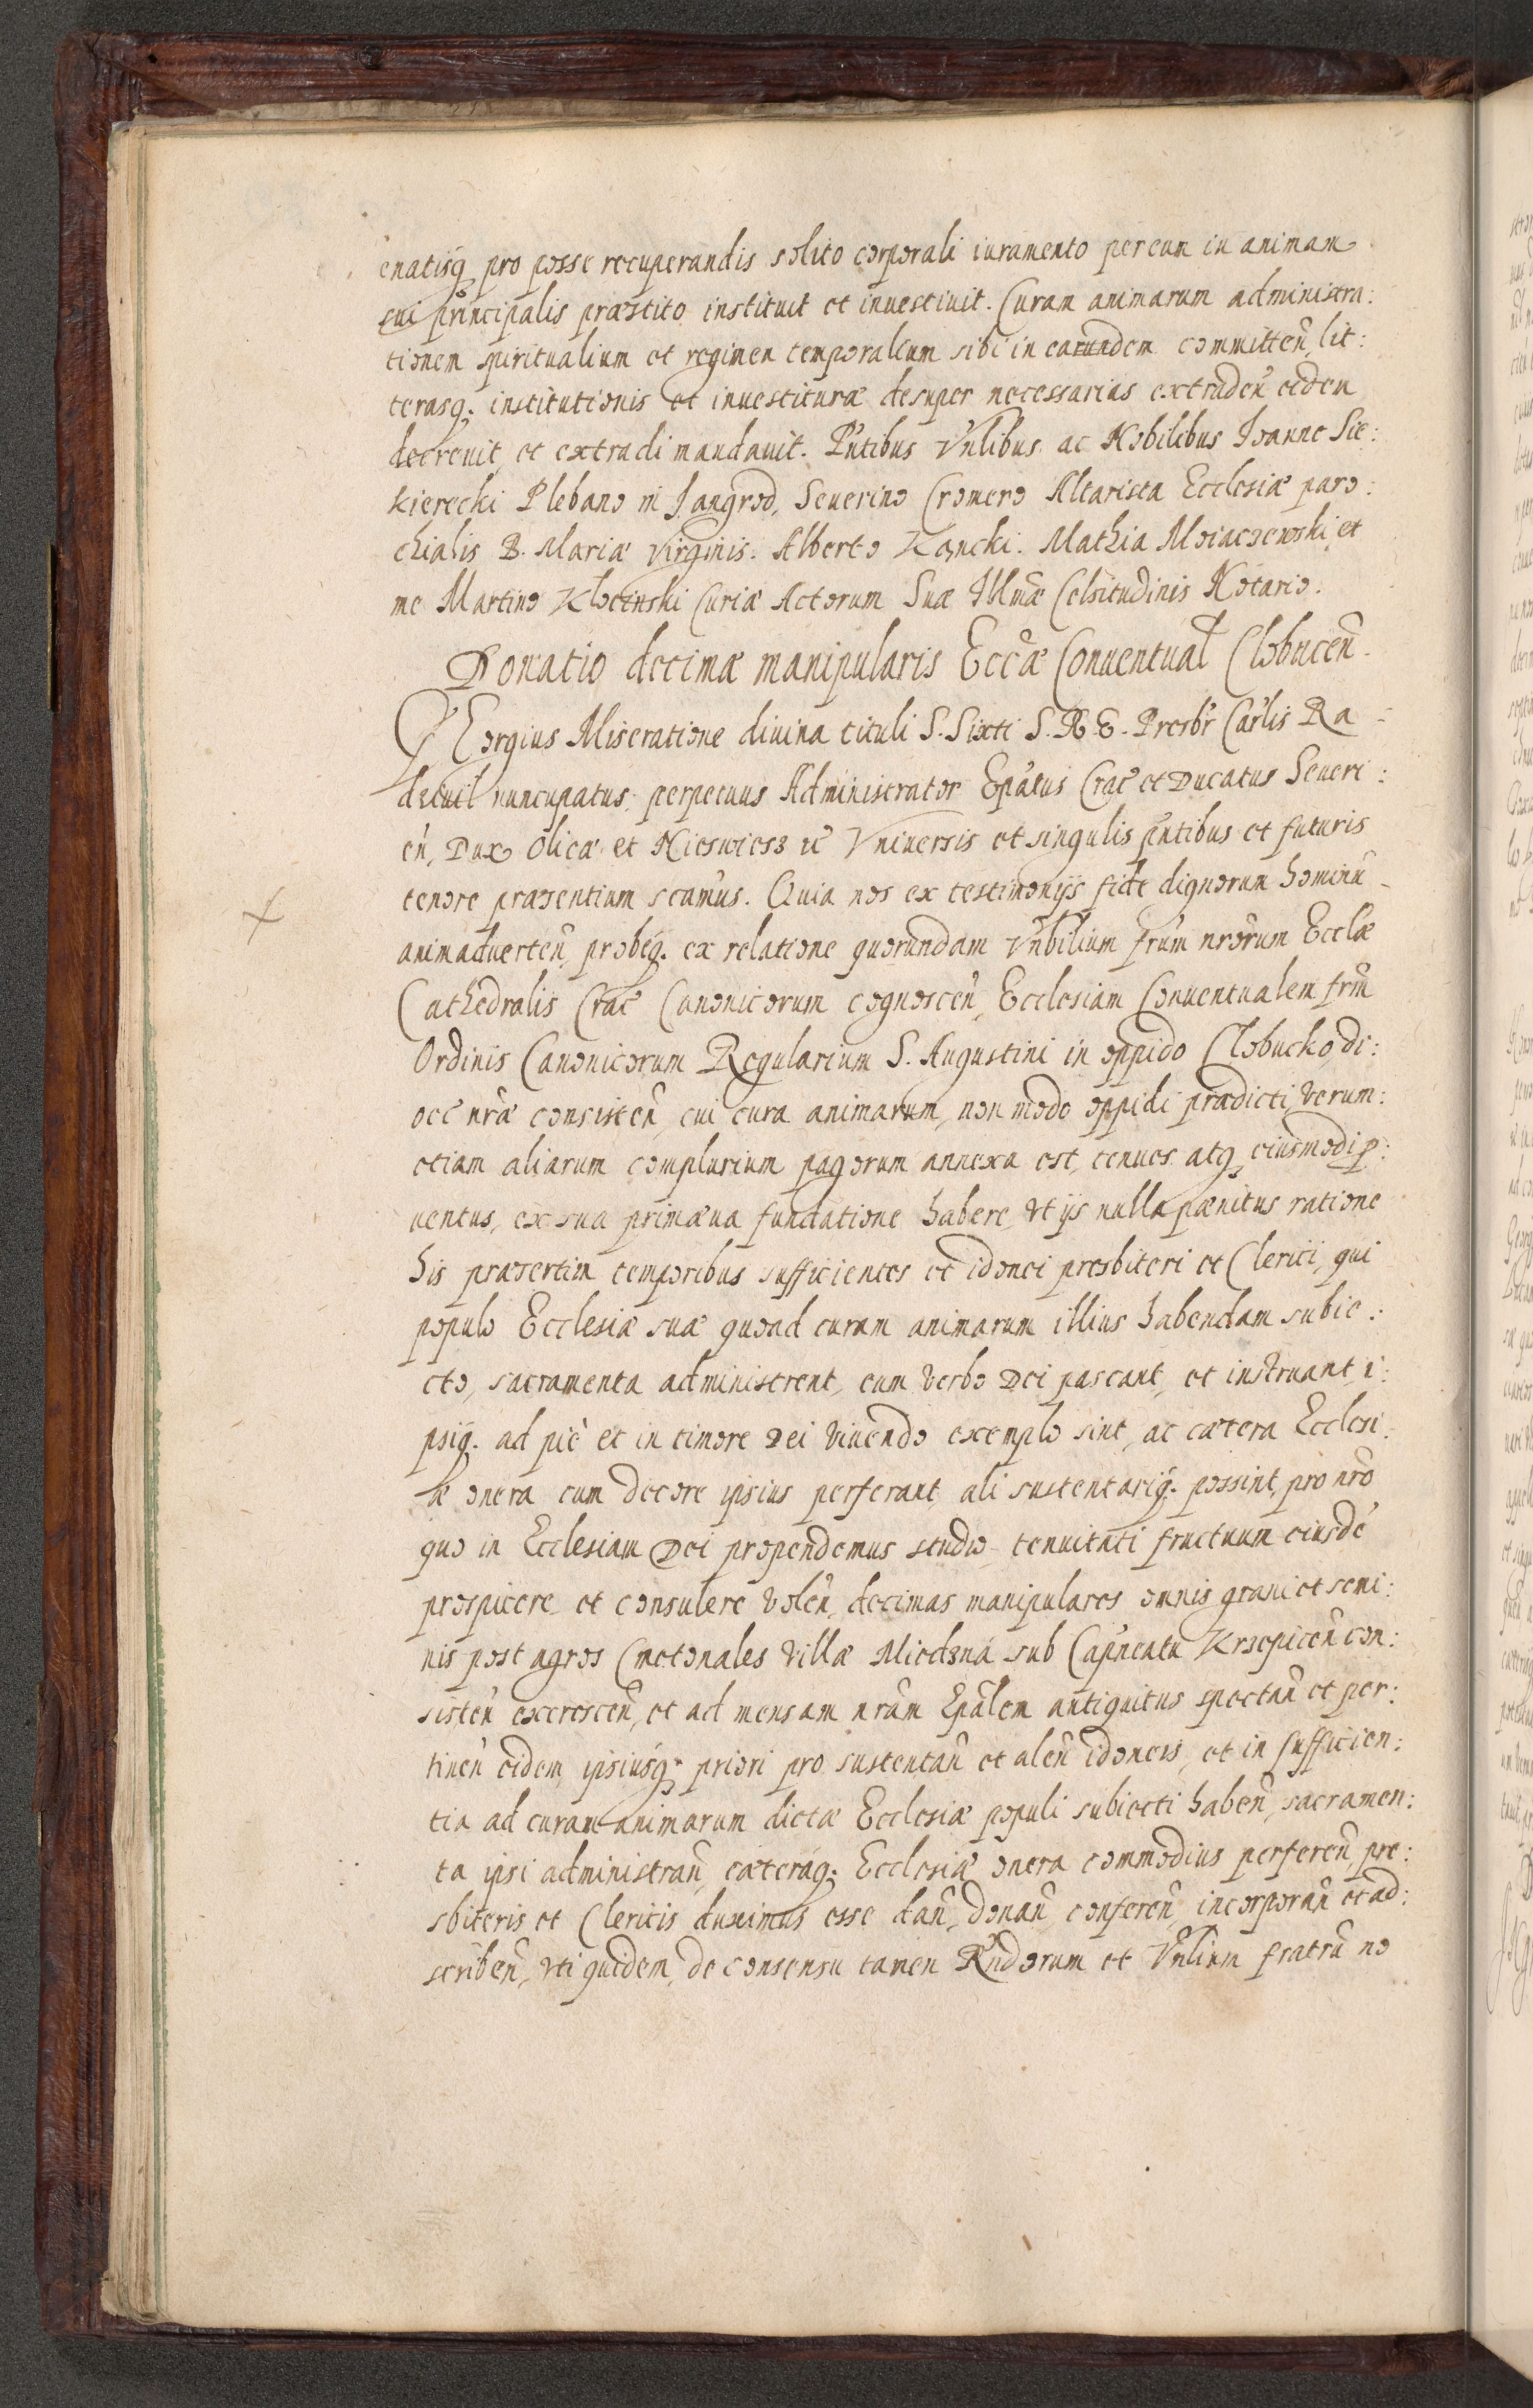 enatisq; pro posse recuperandis solito corporali iuramento per eum in animam
sui principalis præstito instituit et inuestiuit. Curam animarum administra:
tionem spiritualium et regimen temporalium sibi in earundem committen̄, lit:
terasq; institutionis et inuestituræ desuper necessarias extraden̄ eidem
decreuit, et extradi mandauit. Pn̄tibus Vn̄libus ac Nobilibus Joanne Sie:
kierecki Plebano in Jangrod, Seuerino Cromero Altarista Ecclesiæ paro:
chialis B. Mariæ Virginis. Alberto Kancki. Mathia Moiaczewski et
me Martino Kłocinski Curiæ Actorum Suæ Illmæ Celsitudinis Notario.
Donatio decimæ manipularis Eccæ Conuentual Clobucen̄.
GEorgius Miseratione diuina tituli S. Sixti S. R. E. Presbr Carlis Ra
dziuil nuncupatus, perpetuus Administrator Epatus Crac̄ et Ducatus Seueri:
en̄, Dux Olicæ et Nieswiesz &c Vniuersis et singulis pn̄tibus et futuris
tenore præsentium scamus. Quia nos ex testimonijs fide dignorum hominū
animaduerten̄, probeq; ex relatione quorundam Vn̄bilium frūm nrorum Ecclæ
Cathedralis Crac̄ Canonicorum cognoscen̄, Ecclesiam Conuentualem frm̄
Ordinis Canonicorum Regularium S. Augustini in oppido Clobucko, di:
oec̄ nræ consisten̄, cui cura animarum, non modo oppidi prædicti, verum:
etiam aliarum complurium pagorum annexa est, tenues atq; eiusmodi p:
uentus, ex sua primæua fundatione habere, vt ijs nulla pænitus ratione
his præsertim temporibus sufficientes et idonei presbiteri et Clerici, qui
populo Ecclesiæ suæ quoad curam animarum illius habendam subie:
cto, sacramenta administrent, eum verbo Dei pascant, et instruant, i:
psiq; ad piè et in timore Dei viuendo exemplo sint, ac cætera Ecclesi:
æ onera cum decore ipsius perferant, ali sustentariq; possint, pro nro
quo in Ecclesiam Dei propendemus studio tenuitati fructuum eiusdē
prospicere et consulere volen̄, decimas manipulares omnis grani et semi:
nis post agros Cmetonales villæ Miedzna sub Capneatu Krzepicen̄ con:
sisten̄ excrescen̄, et ad mensam nram Epālem antiquitus spectan̄ et per:
tinen̄ eidem, ipsiusq; priori pro sustentan̄ et alen̄ idoneis, et in sufficien:
tia ad curam animarum dictæ Ecclesiæ populi subiecti haben̄, sacramen:
ta ipsi administran̄, cæteraq; Ecclesiæ onera commodius perferen̄, pre:
sbiteris et Clericis duximus esse dan̄, donan̄, conferen̄, incorporan̄ et ad:
scriben̄, vti quidem, de consensu tamen Rn̄dorum et Vn̄lium fratrū no